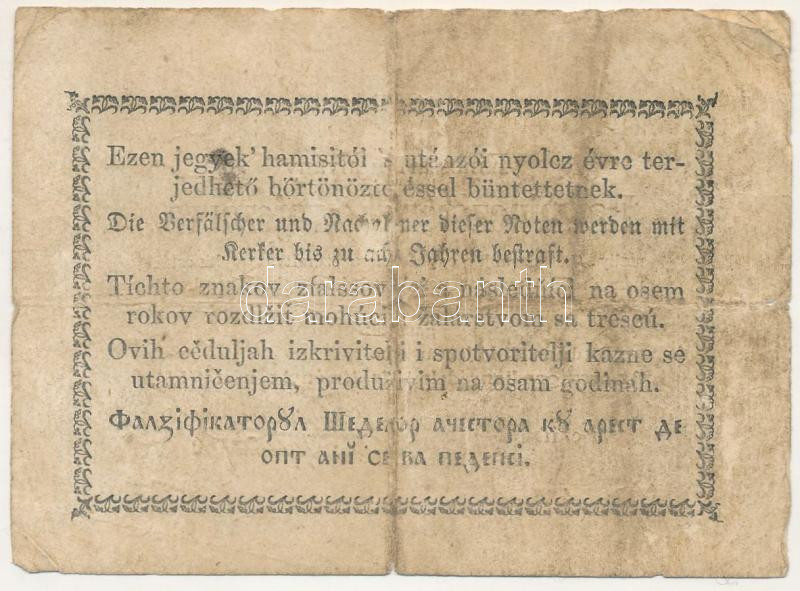 Ezen jegyek' hamisitói 's utánzói nyolcz évre ter-
jedhető börtönöztetéssel büntettetnek.
Die Verfälscher und Nachahmer dieser Noten werden mit
Kerker bis zu acht Jahren bestraft.
Tíchto znakov na osem
rokov rozdlžit zaláretvom sa trescú.
Ovih cěduljah izkrivitelji i spotvoritelji kazne se
utamničenjem, produživim na osam godinah.
Фалзіфікаторꙋл Шеделор ачестора кꙋ арест де
опт анĭ се ва педепсі.
darabanth